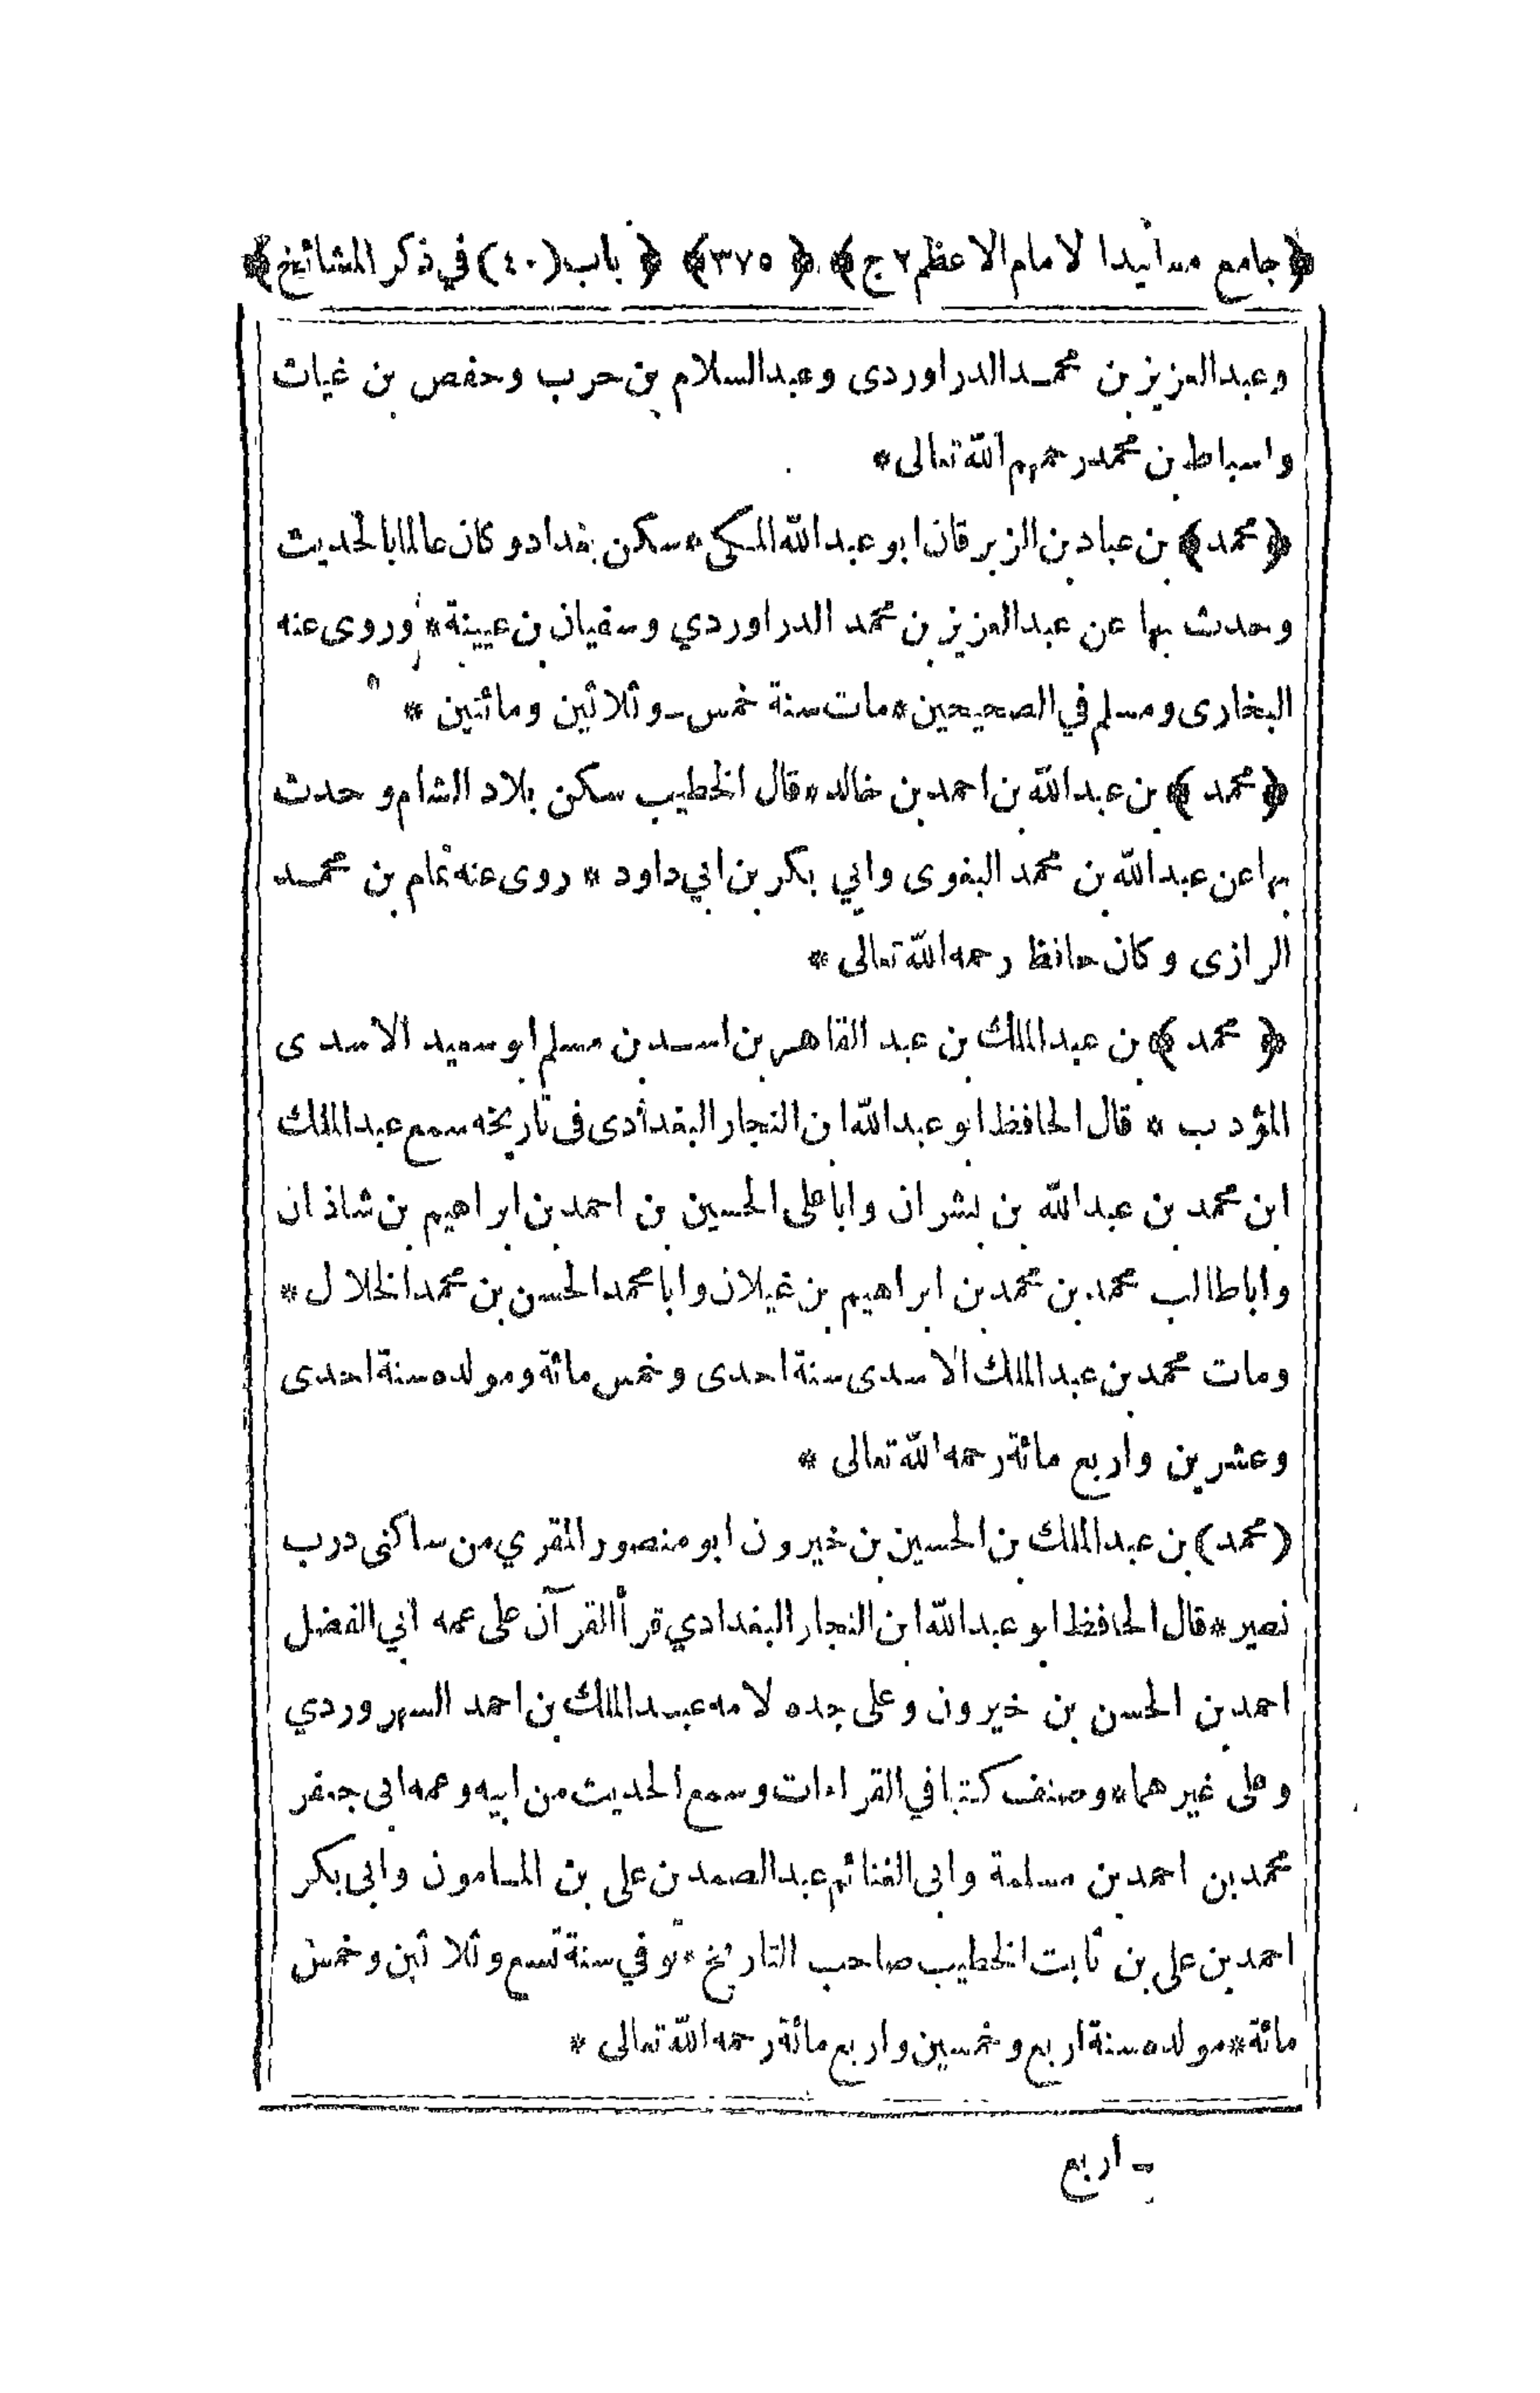 ﴿جامع مسانيد الامام الاعظم ٢ ج﴾ ﴿٣٧٥﴾ ﴿باب (٤٠) في ذكر المشائخ﴾
وعبد العزيز بن محمد الدراوردى وعبد السلام بن حرب وحفص بن غياث
واسباط بن محمد رحمهم الله تعالى *
﴿محمد﴾ بن عباد بن الزبرقان ابو عبد الله المكى * سكن بغداد وكان عالما بالحديث
وحدث بها عن عبد العزيز بن محمد الدراوردي وسفيان بن عيينة * وروى عنه
البخارى ومسلم في الصحيحين * مات سنة خمس وثلاثين ومائتين *
﴿محمد﴾ بن عبد الله بن احمد بن خالد * قال الخطيب سكن بلاد الشام وحدث
بها عن عبد الله بن محمد البغوى وابي بكر بن ابي داود * روى عنه تمام بن محمد
الرازى وكان حافظ رحمه الله تعالى *
﴿محمد﴾ بن عبد الملك بن عبد القاهر بن اسد بن مسلم ابو سعيد الاسدى
المؤدب * قال الحافظ ابو عبد الله ابن النجار البغدادى فى تاريخه سمع عبد الملك
ابن محمد بن عبد الله بن بشران وابا على الحسين بن احمد بن ابراهيم بن شاذان
وابا طالب محمد بن محمد بن ابراهيم بن غيلان وابا محمد الحسن بن محمد الخلال *
ومات محمد بن عبد الملك الاسدى سنة احدى وخمس مائة ومولده سنة احدى
وعشرين واربع مائة رحمه الله تعالى *
(محمد) بن عبد الملك بن الحسين بن خيرون ابو منصور المقري من ساكنى درب
نصير * قال الحافظ ابو عبد الله ابن النجار البغدادي قرأ القرآن على عمه ابي الفضل
احمد بن الحسن بن خيرون وعلى جده لامه عبد الملك بن احمد السهروردي
وعلى غيرهما * وصنف كتبا في القراءات وسمع الحديث من ابيه وعمه ابى جعفر
محمد بن احمد بن مسلمة وابى الغنائم عبد الصمد بن على بن المامون وابى بكر
احمد بن على بن ثابت الخطيب صاحب التاريخ * توفي سنة تسع وثلاثين وخمس
مائة * مولده سنة اربع وخمسين واربع مائة رحمه الله تعالى *
- اربع